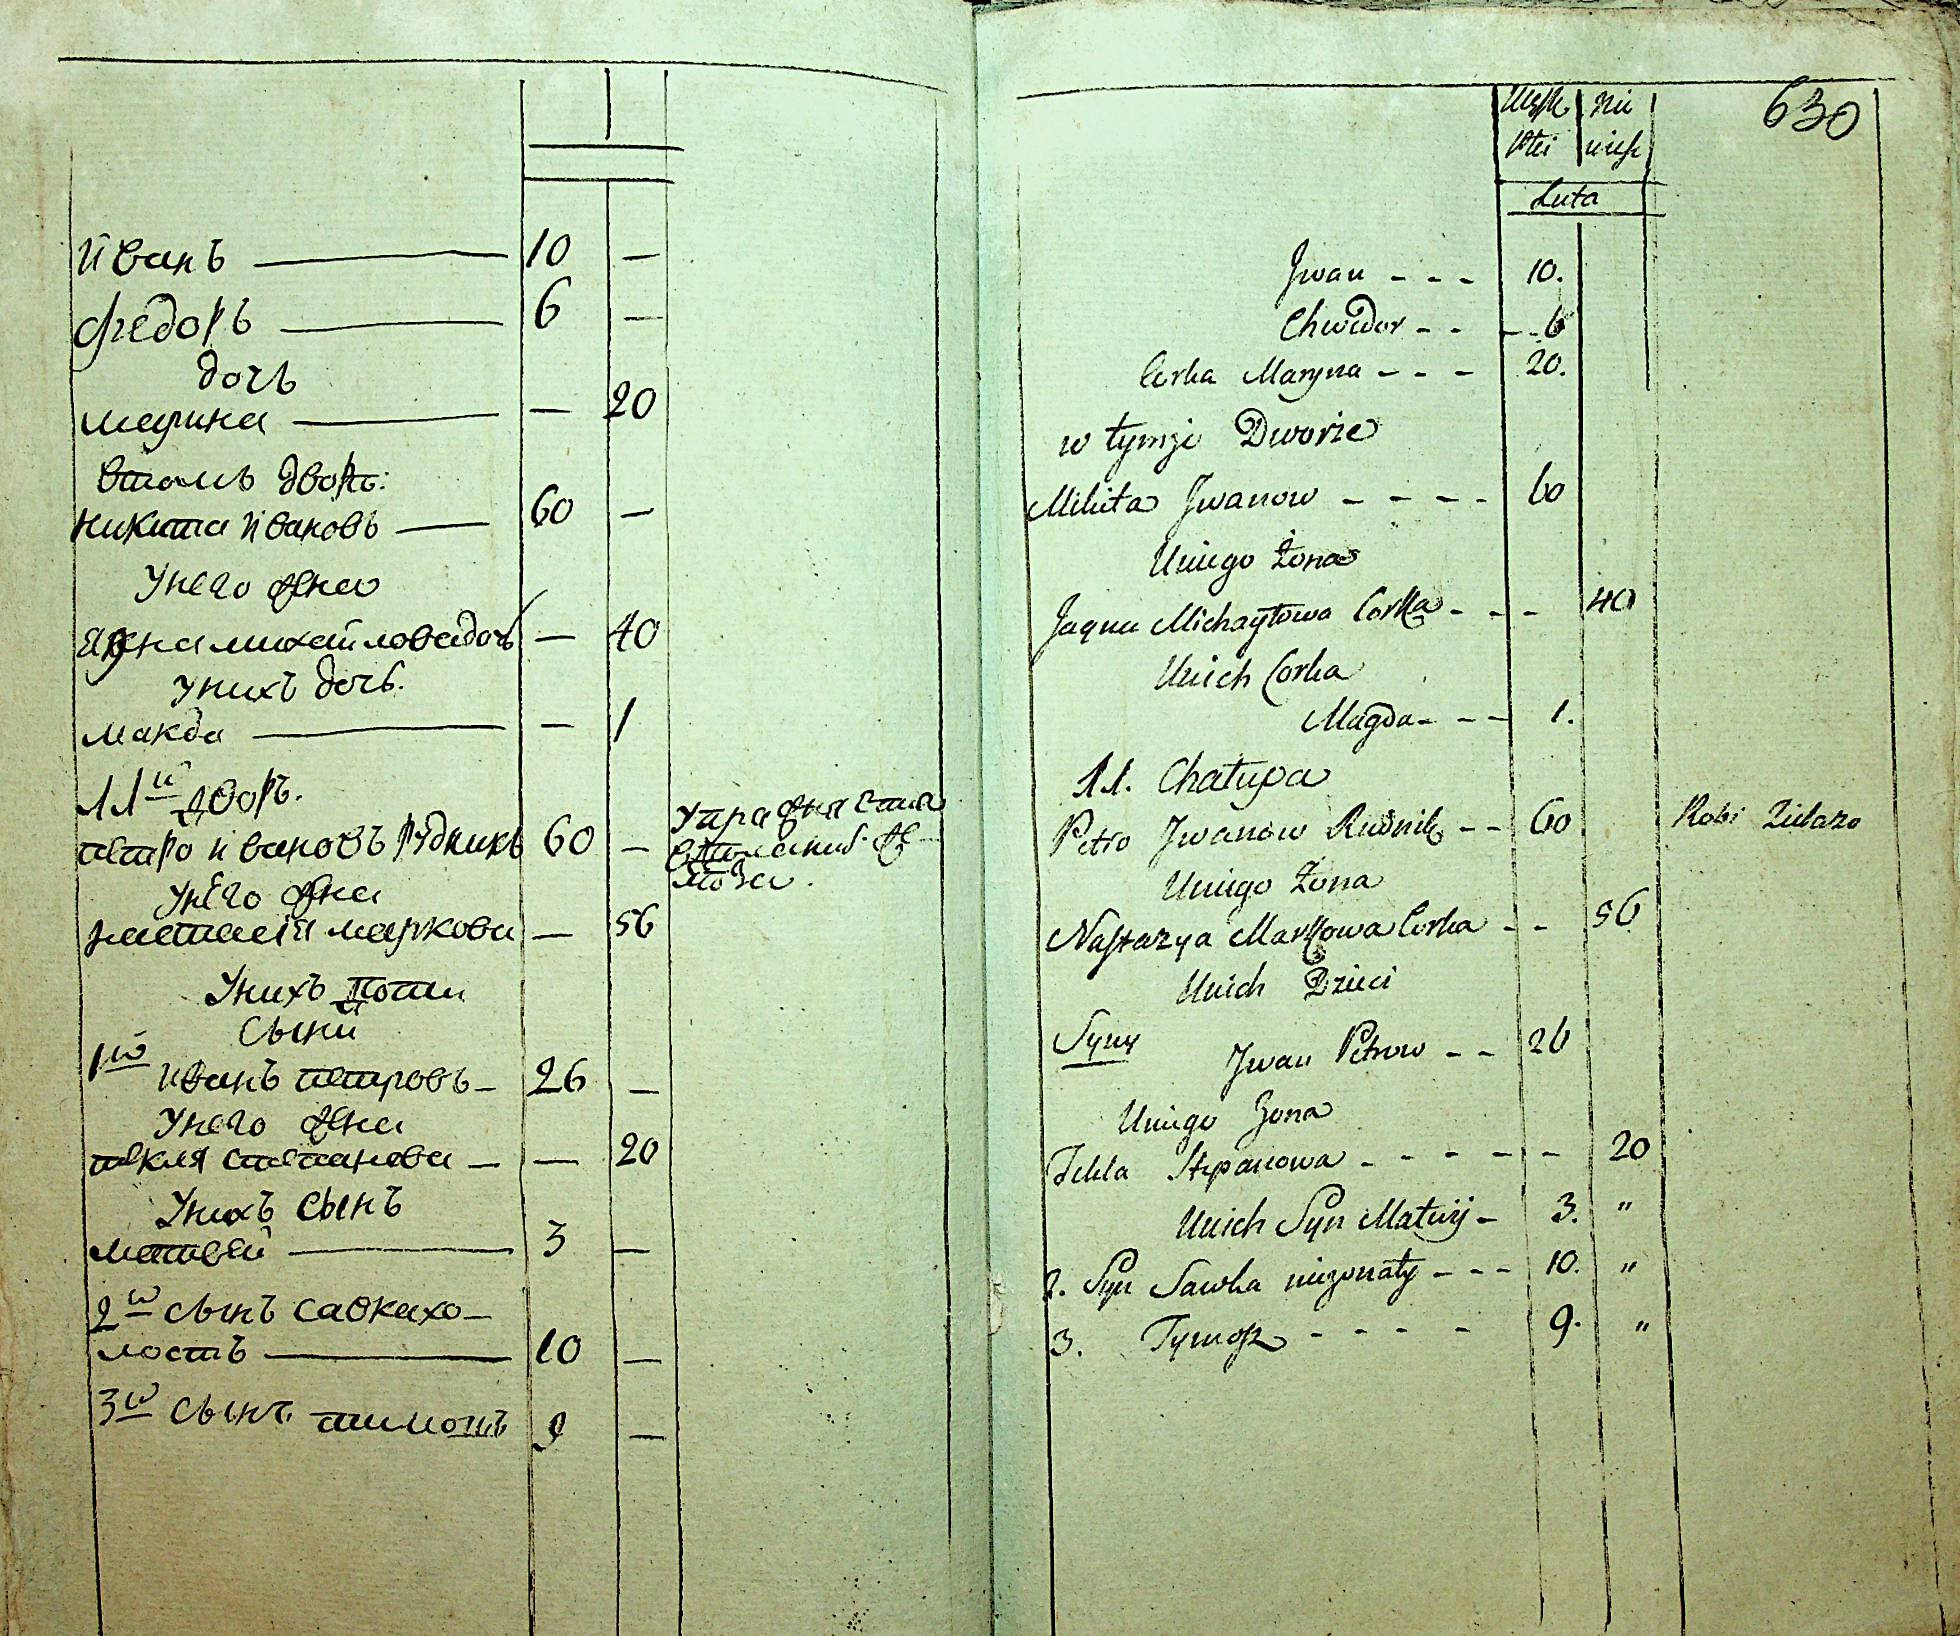 Иванъ — 10 —
Федоръ — 6 —
дочь
марина — — 20
втомъ дворѣ:
никита Ивановъ — 60 —
Унего жена
Ягна михайлова дочь — 40
Унихъ дочь.
Макда — — 1
11й дворъ.
петро ивановъ рудникъ 60 —
Упражняется
Унего жена
настасія маркова — 56
Унихъ дети
Сыны
1й
иванъ петровъ — 26 —
Унего жена
текля степанова — — 20
Унихъ сынъ
матвей — 3 —
2й сынъ савка хо-
лостъ — 10 —
3й сынъ тимошъ 9 —
630
Męsk Nie
Płci wieś
Luta
Jwan - - - 10.
Chwedor - - - - 6
Corka Maryna - - - 20.
w tymże Dworze
Mikita Jwanow - - - - 60
Uniego Żona
Jagna Michayłowa Corka - - - 40
Unich Corka
Magda - - - 1.
11. Chałupa
Petro Jwanow Rudnik - - 60 Robi Żelazo
Uniego Żona
Nastazya Markowa Corka - - 56
Unich Dzieci
Syny Jwan Petrow - - 26
Uniego Zona
Tekla Stepanowa - - - - - - 20
Unich Syn Matwij - 3. "
2. Syn Sawka niezonaty - - - 10. "
3. Tymosz - - - - 9. "